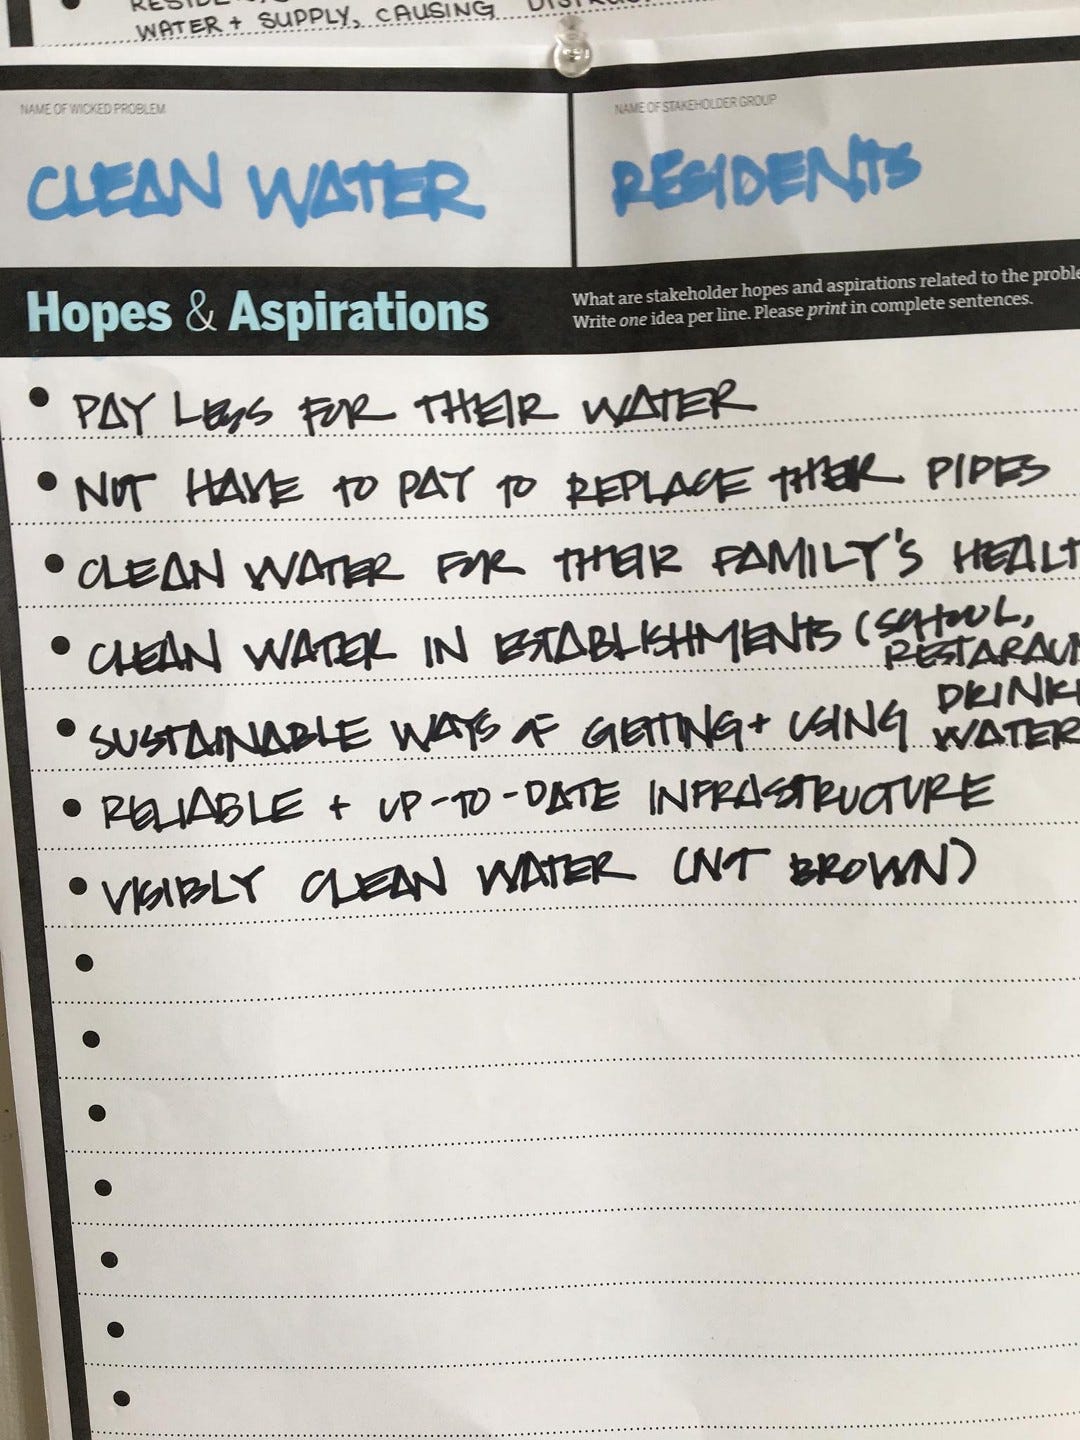 WATER + SUPPLY, CAUSING
NAME OF WICKED PROBLEM
CLEAN WATER
NAME OF STAKEHOLDER GROUP
RESIDENTS
Hopes & Aspirations
What are stakeholder hopes and aspirations related to the proble
Write one idea per line. Please print in complete sentences.
• PAY LESS FOR THEIR WATER
• NOT HAVE TO PAY TO REPLACE THEIR PIPES
• CLEAN WATER FOR THEIR FAMILY'S HEALT
• CLEAN WATER IN ESTABLISHMENTS (SCHOOL,
RESTARAUN
• SUSTAINABLE WAYS OF GETTING + USING DRINKI
WATER
• RELIABLE + UP-TO-DATE INFRASTRUCTURE
• VISIBLY CLEAN WATER (NOT BROWN)